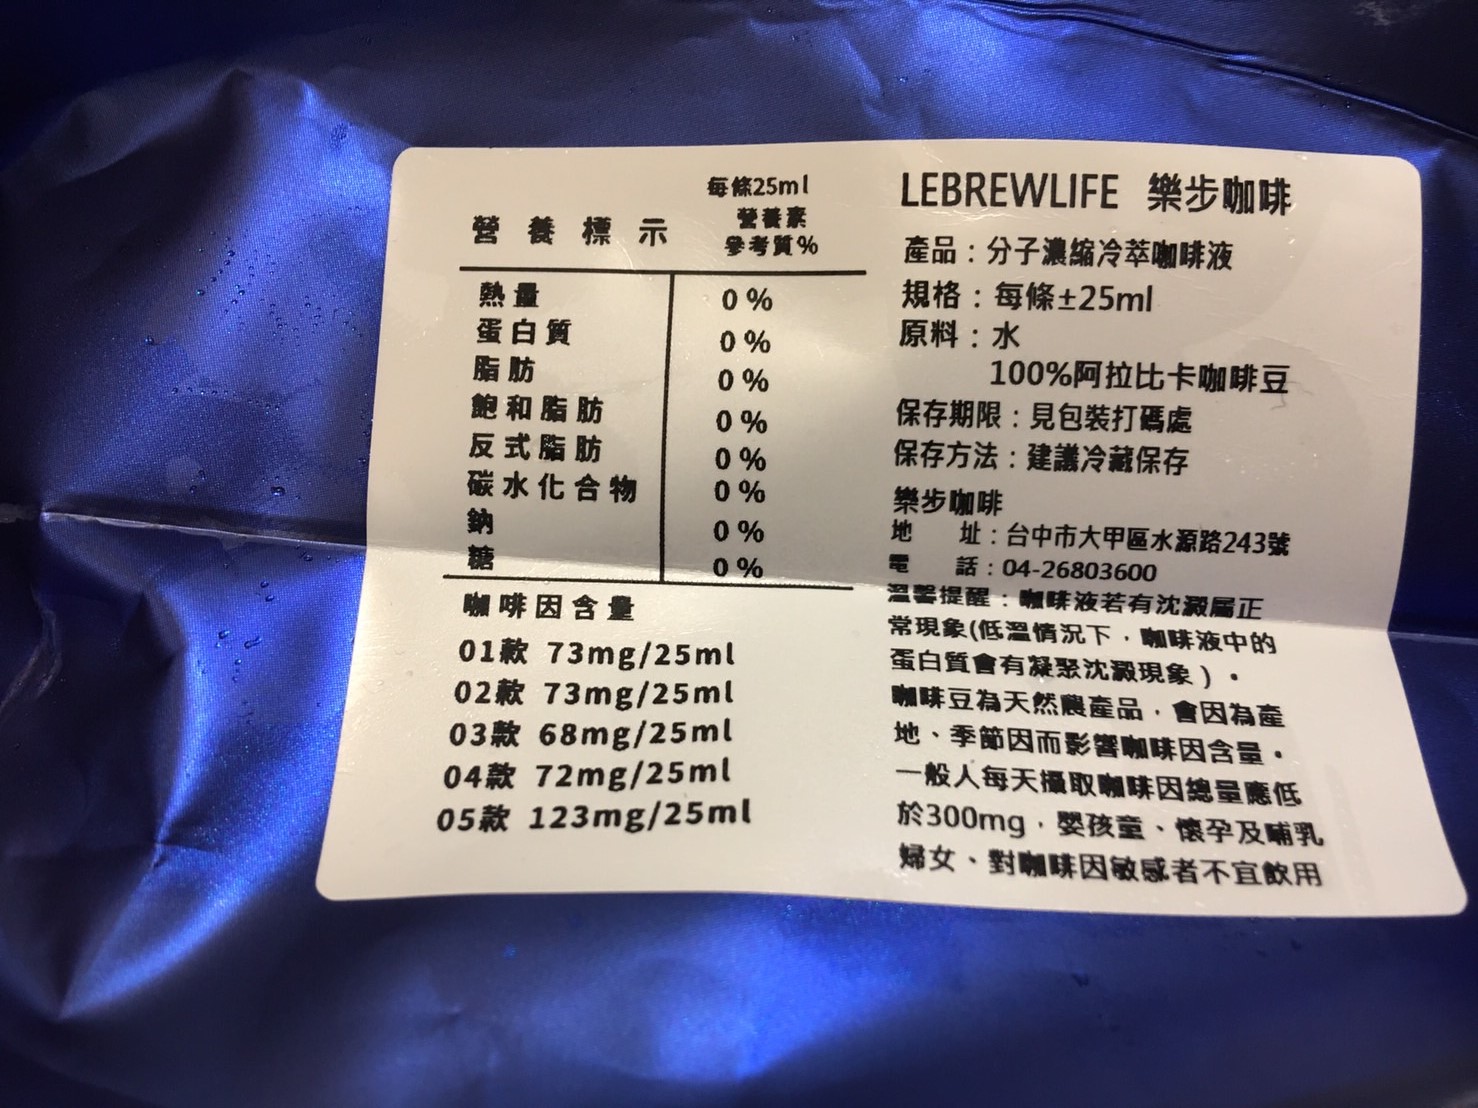 每條25ml
營養標示
營養素
參考質%
熱量 0%
蛋白質 0%
脂肪 0%
飽和脂肪 0%
反式脂肪 0%
碳水化合物 0%
鈉 0%
糖 0%
咖啡因含量
01款 73mg/25ml
02款 73mg/25ml
03款 68mg/25ml
04款 72mg/25ml
05款 123mg/25ml
LEBREWLIFE 樂步咖啡
產品：分子濃縮冷萃咖啡液
規格：每條±25ml
原料：水
100%阿拉比卡咖啡豆
保存期限：見包裝打碼處
保存方法：建議冷藏保存
樂步咖啡
地 址：台中市大甲區水源路243號
電 話：04-26803600
溫馨提醒：咖啡液若有沈澱屬正
常現象(低溫情況下，咖啡液中的
蛋白質會有凝聚沈澱現象)。
咖啡豆為天然農產品，會因為產
地、季節因而影響咖啡因含量。
一般人每天攝取咖啡因總量應低
於300mg，嬰孩童、懷孕及哺乳
婦女、對咖啡因敏感者不宜飲用